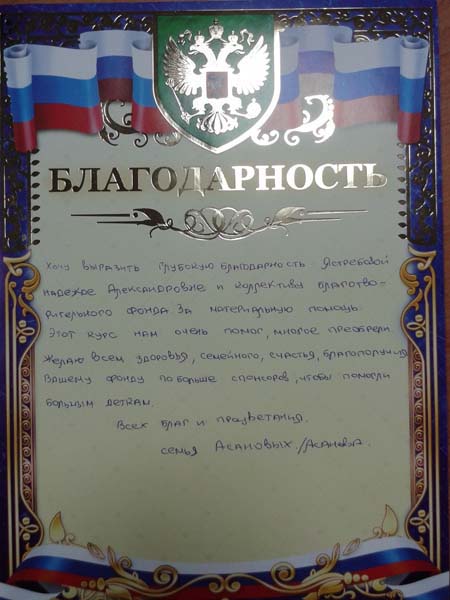 БЛАГОДАРНОСТЬ
Хочу выразить глубокую благодарность Ястребовой
Надежде Александровне и коллективу благотво-
рительного фонда за материальную помощь.
Этот курс нам очень помог, многое преобрели
Желаю всем здоровья, семейного, счастья, благополучия
Вашему фонду по больше спонсоров, чтобы помогли
больным деткам.
Всех благ и процветания.
семья Асановых./Асанова.